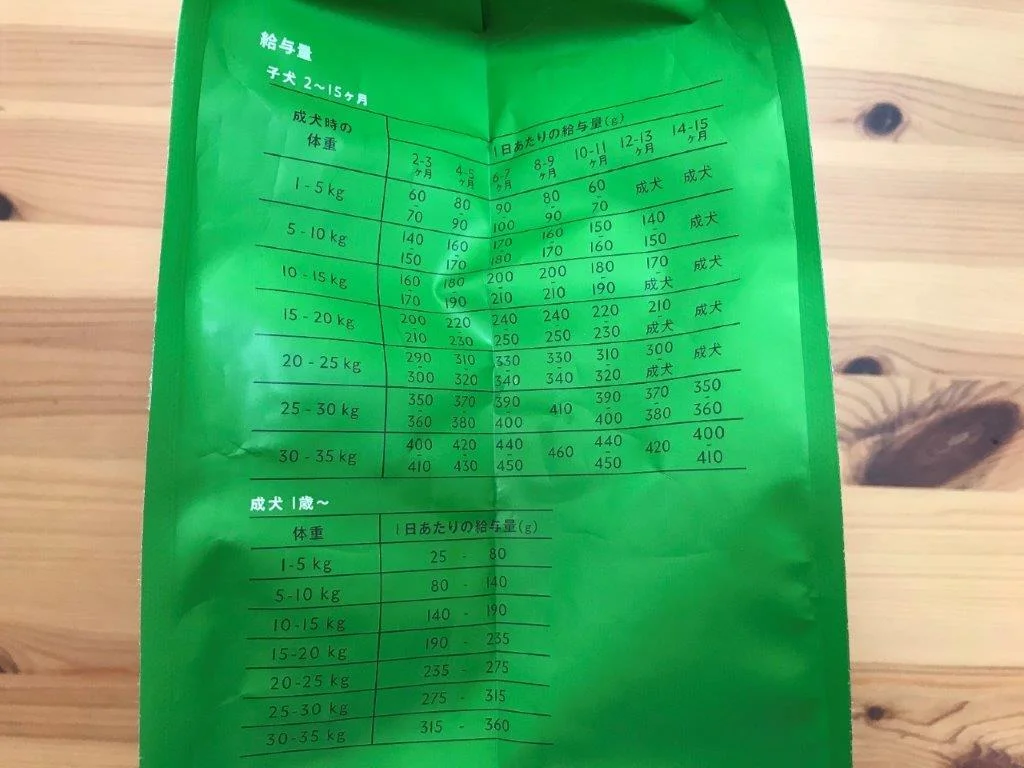 給与量
子犬 2～15ヶ月
成犬時の体重 1日あたりの給与量(g)
2-3ヶ月 4-5ヶ月 6-7ヶ月 8-9ヶ月 10-11ヶ月 12-13ヶ月 14-15ヶ月
1 - 5 kg 60-70 80-90 90-100 80-90 60-70 成犬 成犬
5 - 10 kg 140-150 160-170 170-180 160-170 150-160 140-150 成犬
10 - 15 kg 160-170 180-190 200-210 200-210 180-190 170-成犬 成犬
15 - 20 kg 200-210 220-230 240-250 240-250 220-230 210-成犬 成犬
20 - 25 kg 290-300 310-320 330-340 330-340 310-320 300-成犬 成犬
25 - 30 kg 350-360 370-380 390-400 410 390-400 370-380 350-360
30 - 35 kg 400-410 420-430 440-450 460 440-450 420 400-410
成犬 1歳～
体重 1日あたりの給与量(g)
1-5 kg 25 - 80
5-10 kg 80 - 140
10-15 kg 140 - 190
15-20 kg 190 - 235
20-25 kg 235 - 275
25-30 kg 275 - 315
30-35 kg 315 - 360